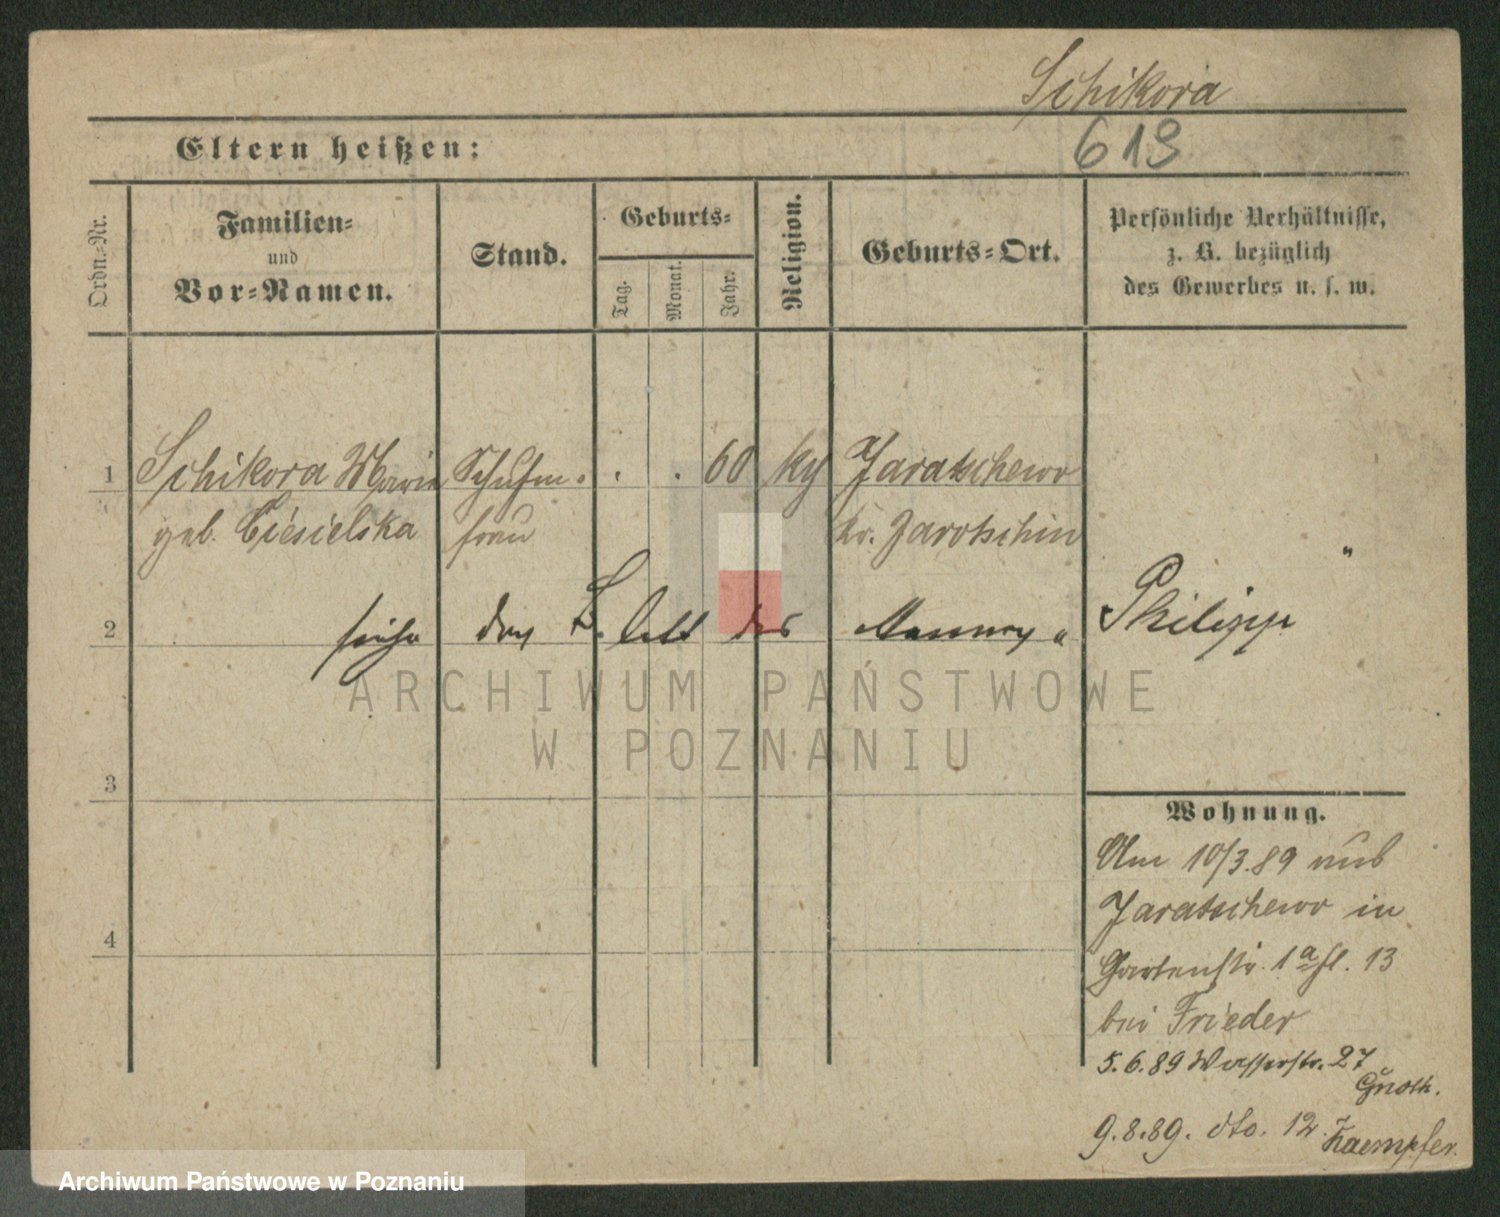 Schikora
613
Eltern heißen:
Ordn.-Nr.
Familien-
und
Vor-Namen.
Stand.
Geburts-
Tag.
Monat.
Jahr.
Religion.
Geburts-Ort.
Persönliche Verhältnisse,
z. B. bezüglich
des Gewerbes u. s. w.
1 Schikora Marie Schuhm. . . 60 Jaratschewo
geb. Ciesielska frau Kr. Jarotschin
2 siehe das Blatt des Mannes Philipp
3
4
Wohnung.
Am 10/3.89 aus
Jaratschewo in
Gartenstr. 1a fl. 13
bei Frieder
5.6.89 Wasserstr. 27
Gnoth.
9.8.89. dto. 12.
Kaempfer.
ARCHIWUM PAŃSTWOWE
W POZNANIU
Archiwum Państwowe w Poznaniu